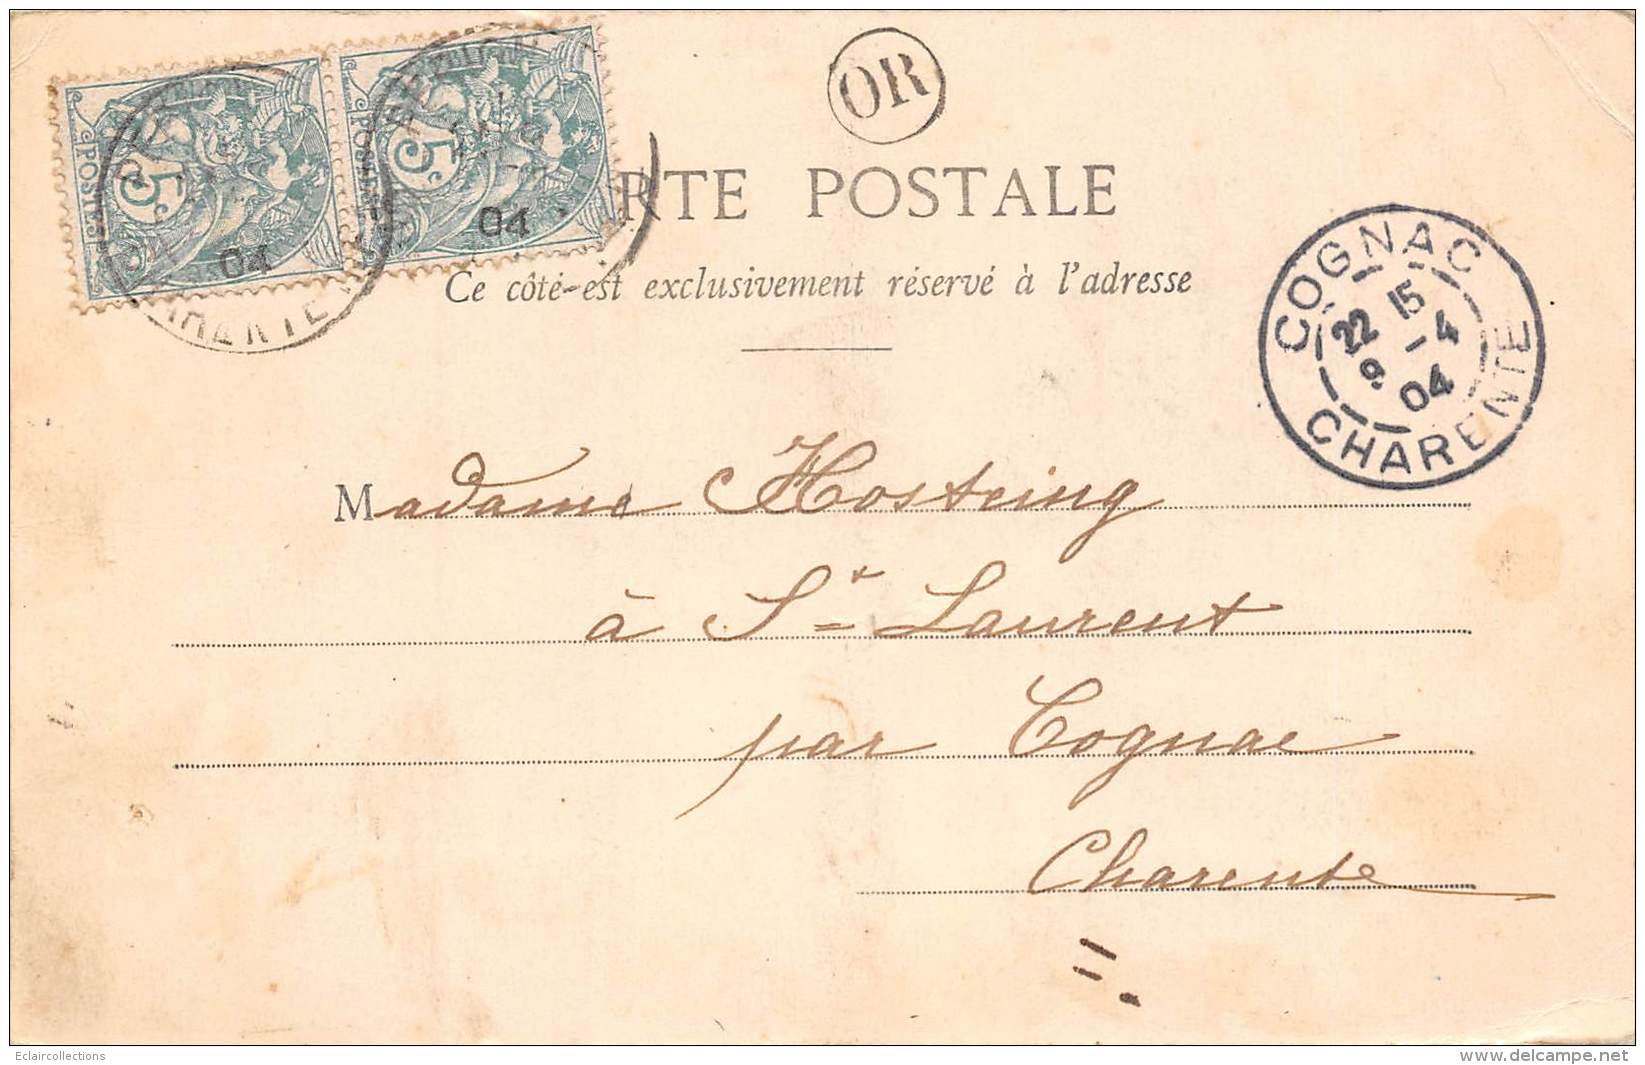 OR
5c
POSTES
04
5c
POSTES
04
CHARENTE
RTE POSTALE
Ce côté-est exclusivement réservé à l'adresse
COGNAC
22 15
9 - 4
04
CHARENTE
Madame Hosteing
à St Laurent
par Cognac
Charente
Eclaircollections
www.delcampe.net